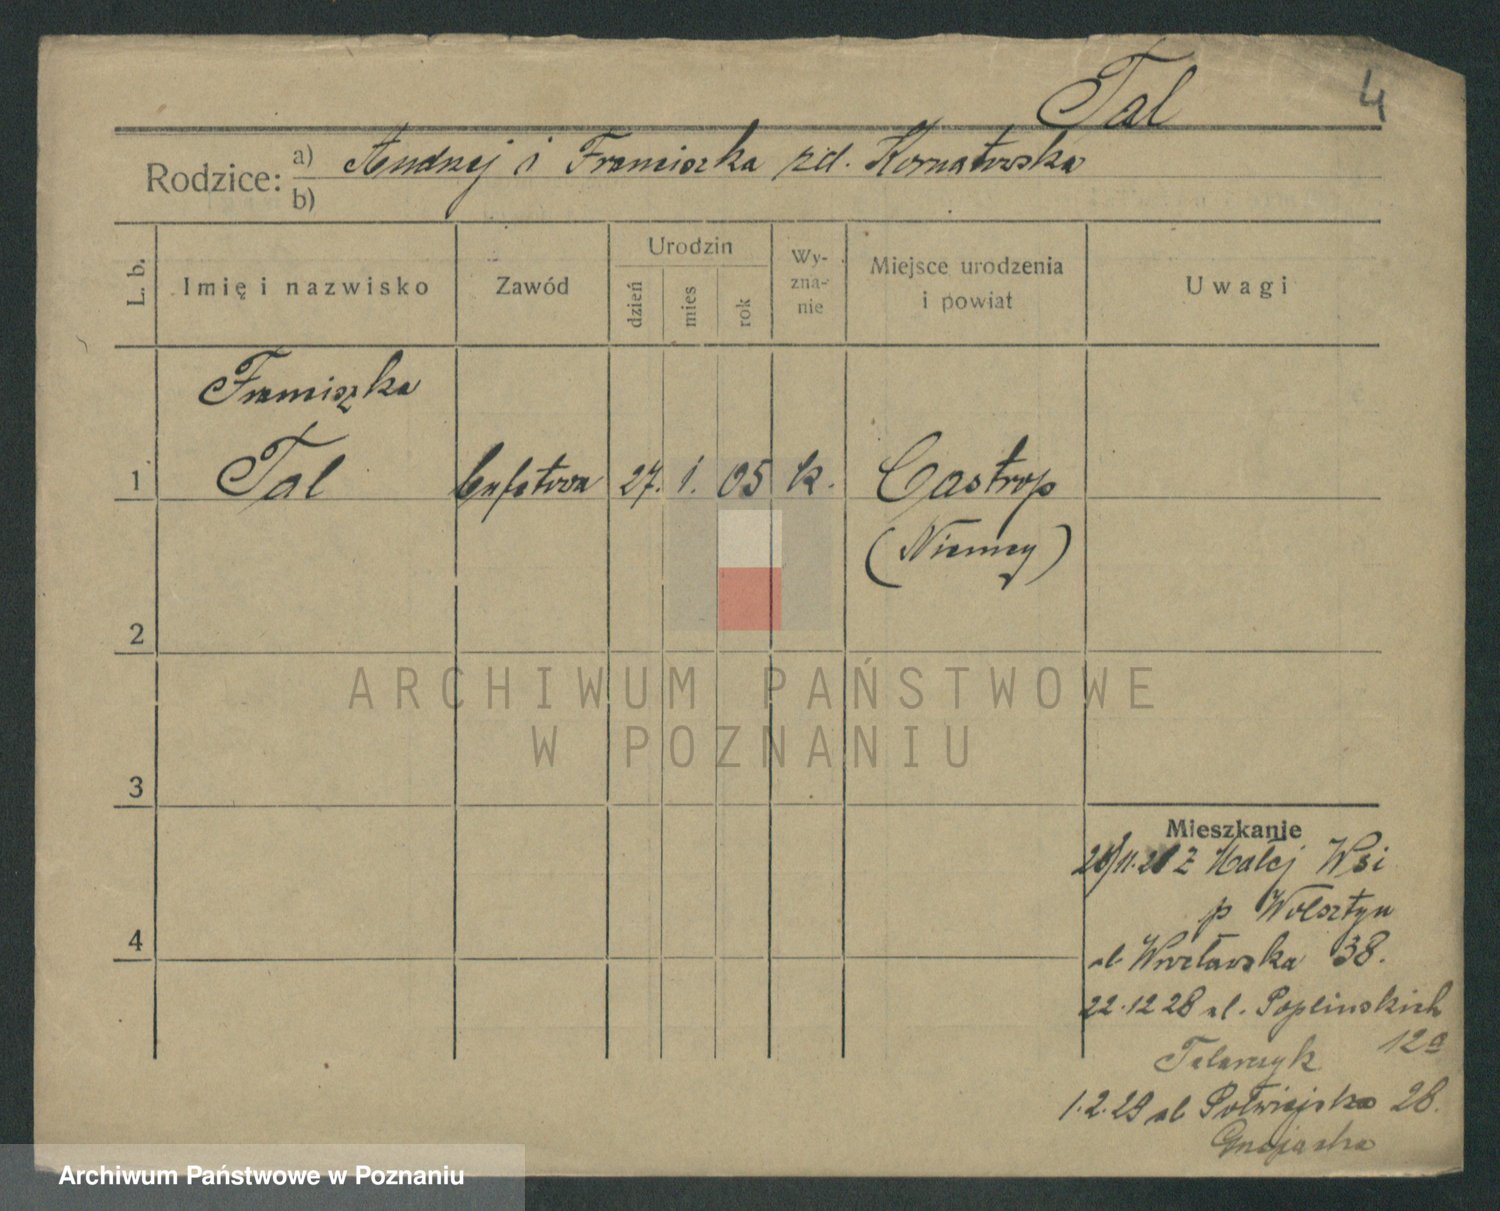 Tal 4
Rodzice: a) Andrzej i Franciszka zd. Kornatowska
b)
L. b. Imię i nazwisko Zawód Urodzin dzień mies rok Wy-zna-nie Miejsce urodzenia i powiat Uwagi
Franciszka
1 Tal bufetowa 27. 1. 05 k. Castrop
(Niemcy)
2
ARCHIWUM PAŃSTWOWE
W POZNANIU
3
Mieszkanie
28/11.28 z Małej Wsi
p Wolsztyn
4
ul Wrocławska 38.
22.12 28 ul. Poplinskich
12a
Talarczyk
1.2.29 ul Półwiejska 28.
Archiwum Państwowe w Poznaniu